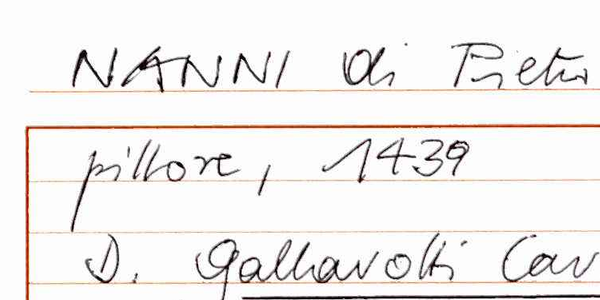 NANNI di Pietro
pittore, 1439
D. Gallavotti Cav